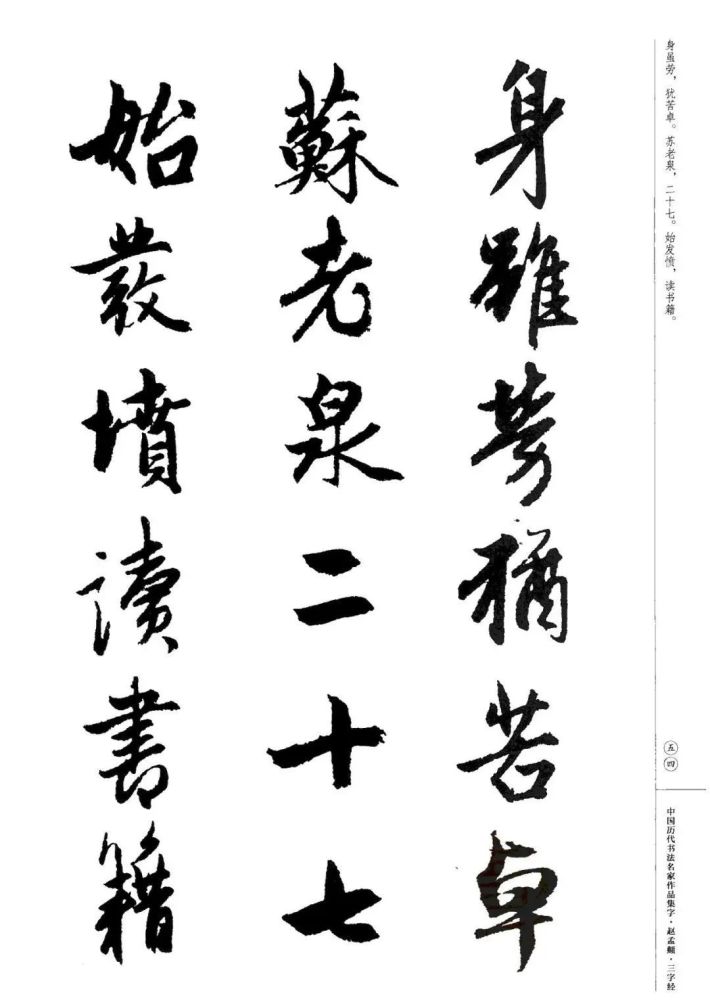 身雖勞猶苦卓
蘇老泉二十七
始發墳讀書籍
身虽劳，犹苦卓。苏老泉，二十七。始发愤，读书籍。
五四
中国历代书法名家作品集字·赵孟頫·三字经